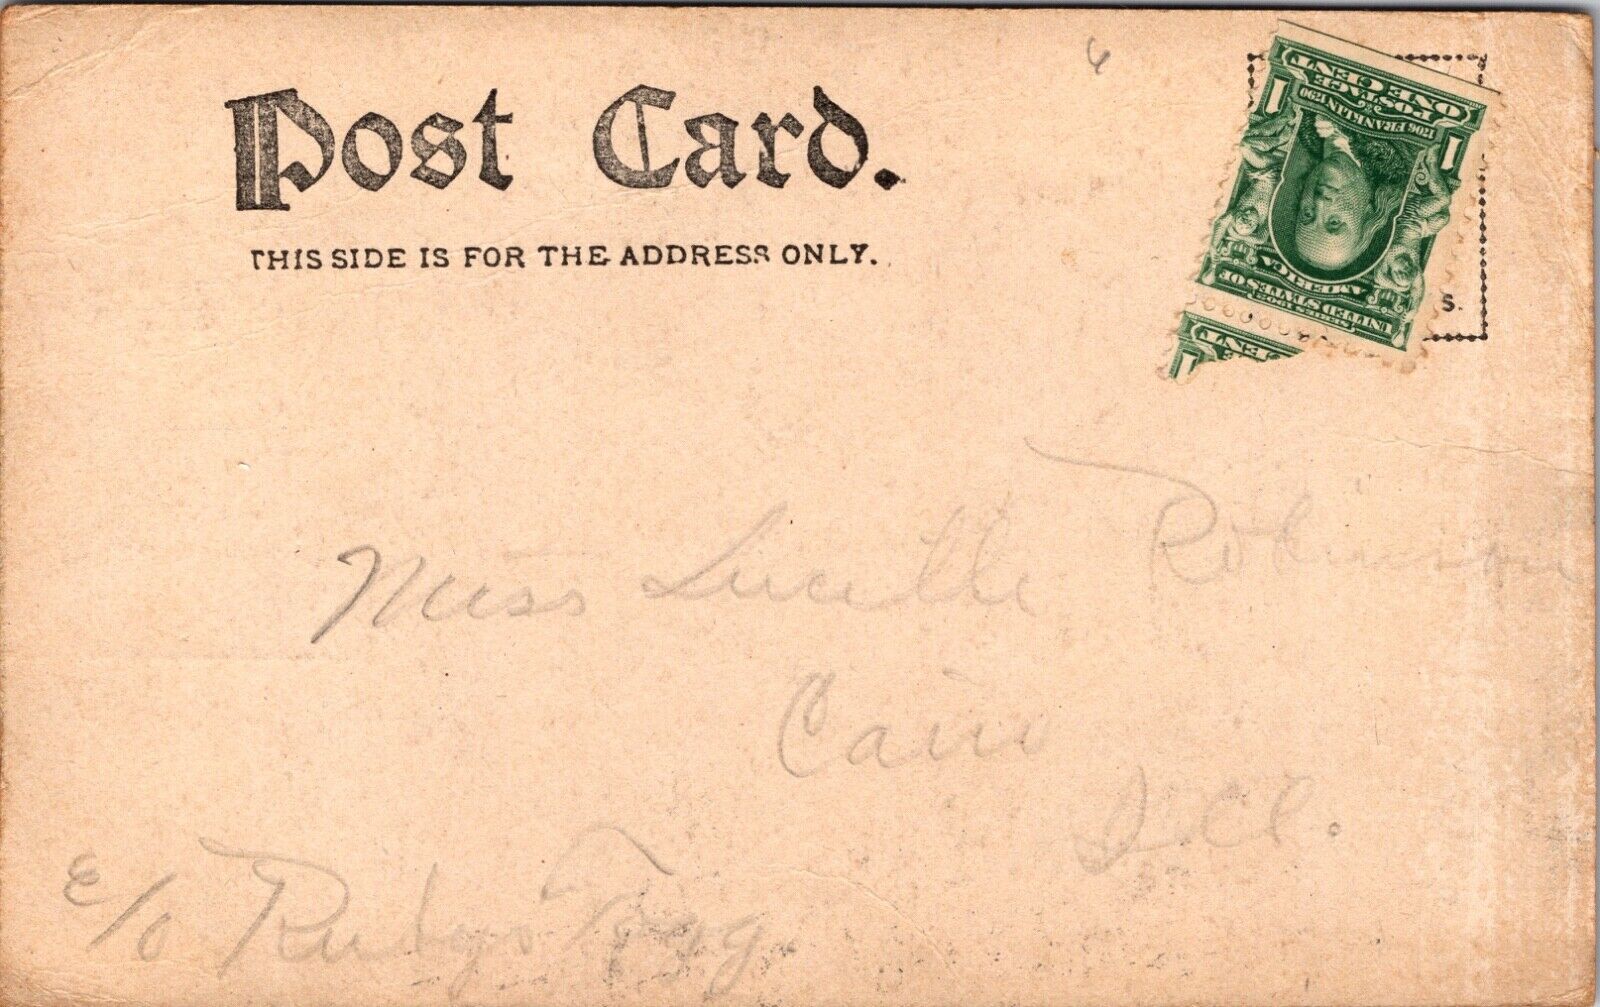 Post Card.
THIS SIDE IS FOR THE ADDRESS ONLY.
6
SERIES 1902
UNITED STATES OF
AMERICA
1706 FRANKLIN 1790
POSTAGE
ONE CENT
1 1
CENT
1
S.
Miss Lucille Robinson
Cairo
Ill.
c/o Rudy